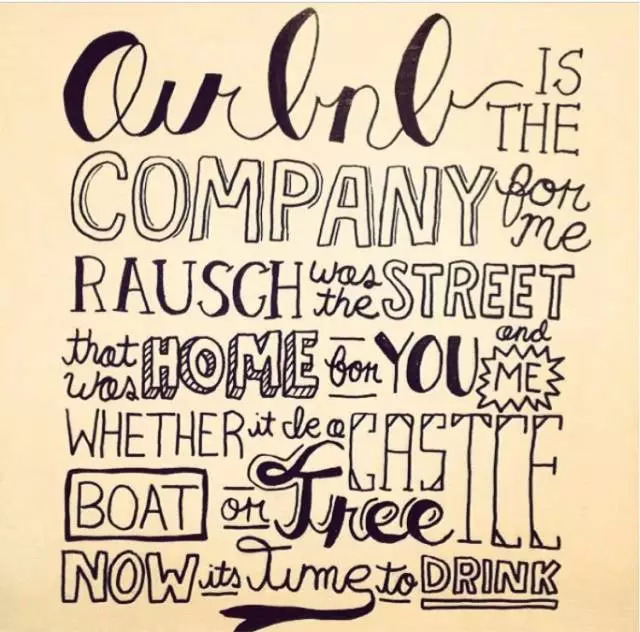 airbnb IS THE
COMPANY for me
RAUSCH was the STREET
that was HOME for YOU and ME
WHETHER it be a CASTLE
BOAT or Tree
NOW its Time to DRINK